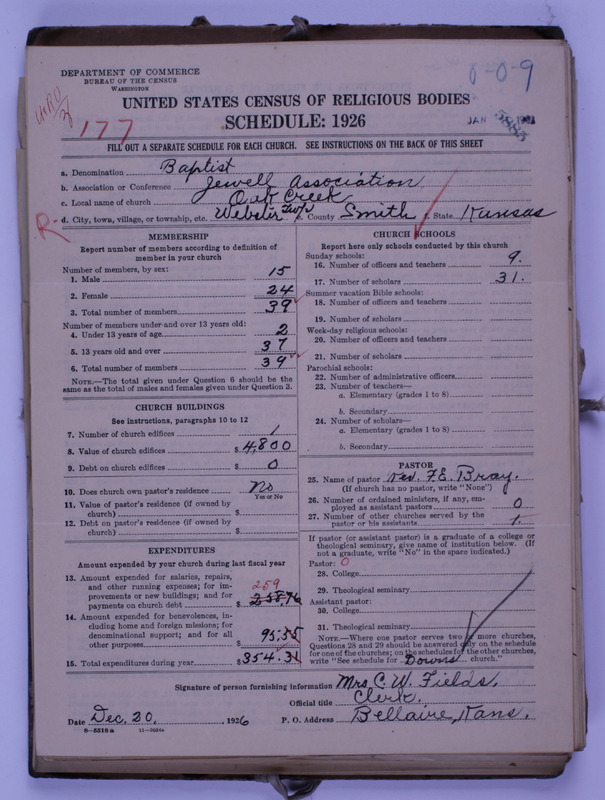 DEPARTMENT OF COMMERCE
BUREAU OF THE CENSUS
WASHINGTON
0-0-9
177
UNITED STATES CENSUS OF RELIGIOUS BODIES
SCHEDULE: 1926
JAN
5885
FILL OUT A SEPARATE SCHEDULE FOR EACH CHURCH. SEE INSTRUCTIONS ON THE BACK OF THIS SHEET
a. Denomination Baptist
b. Association or Conference Jewell Association
c. Local name of church Oak Creek
R- d. City, town, village, or township, etc. Webster Twp e. County Smith f. State Kansas
MEMBERSHIP
Report number of members according to definition of member in your church
Number of members, by sex:
1. Male 15
2. Female 24
3. Total number of members 39
Number of members under and over 13 years old:
4. Under 13 years of age 2
5. 13 years old and over 37
6. Total number of members 39
NOTE.—The total given under Question 6 should be the same as the total of males and females given under Question 3.
CHURCH BUILDINGS
See instructions, paragraphs 10 to 12
7. Number of church edifices 1
8. Value of church edifices $ 4,800
9. Debt on church edifices $ 0
10. Does church own pastor's residence No
Yes or No
11. Value of pastor's residence (if owned by church) $
12. Debt on pastor's residence (if owned by church) $
EXPENDITURES
Amount expended by your church during last fiscal year
13. Amount expended for salaries, repairs, and other running expenses; for improvements or new buildings; and for payments on church debt $ 258.76
259
14. Amount expended for benevolences, including home and foreign missions; for denominational support; and for all other purposes $ 95.55
15. Total expenditures during year $ 354.31
CHURCH SCHOOLS
Report here only schools conducted by this church
Sunday schools:
16. Number of officers and teachers 9.
17. Number of scholars 31.
Summer vacation Bible schools:
18. Number of officers and teachers
19. Number of scholars
Week-day religious schools:
20. Number of officers and teachers
21. Number of scholars
Parochial schools:
22. Number of administrative officers
23. Number of teachers—
a. Elementary (grades 1 to 8)
b. Secondary
24. Number of scholars—
a. Elementary (grades 1 to 8)
b. Secondary
PASTOR
25. Name of pastor Rev. F. E. Bray.
(If church has no pastor, write "None")
26. Number of ordained ministers, if any, employed as assistant pastors 0
27. Number of other churches served by the pastor or his assistants 1.
If pastor (or assistant pastor) is a graduate of a college or theological seminary, give name of institution below. (If not a graduate, write "No" in the space indicated.)
Pastor: 0
28. College
29. Theological seminary
Assistant pastor:
30. College
31. Theological seminary
NOTE.—Where one pastor serves two or more churches, Questions 28 and 29 should be answered only on the schedule for one of the churches; on the schedules for the other churches, write "See schedule for Downs church."
Signature of person furnishing information Mrs. C. W. Fields.
Official title Clerk.
Date Dec. 20, 1926
P. O. Address Bellaire, Kans.
8—5510a 11—9024a